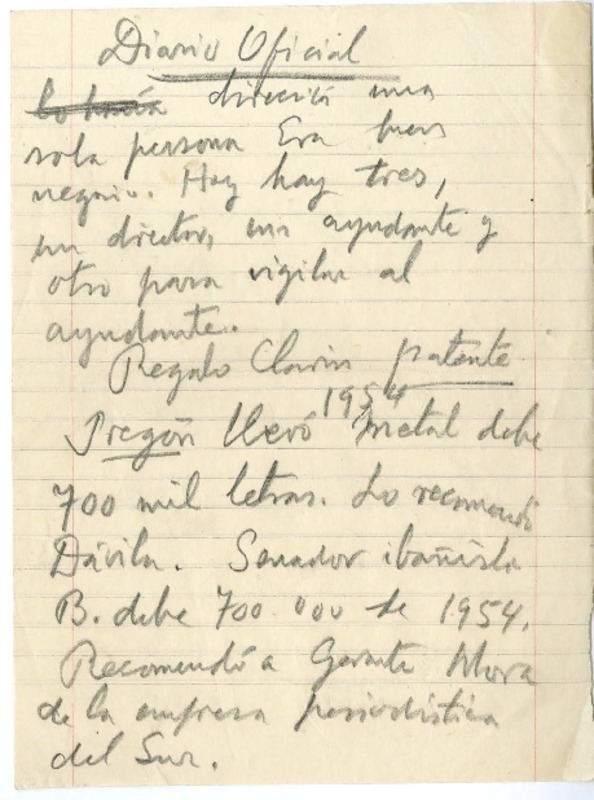 Diario Oficial
lo hacía dirección una
sola persona Era buen
negocio. Hoy hay tres,
un director, un ayudante y
otro para vigilar al
ayudante.
Regalo Clarín patente
1954
Pregón llevó metal debe
700 mil letras. Lo recomendó
Dávila. Senador ibañista
B. debe 700.000 de 1954.
Recomendó a Gerente Mora
de la empresa periodística
del Sur.